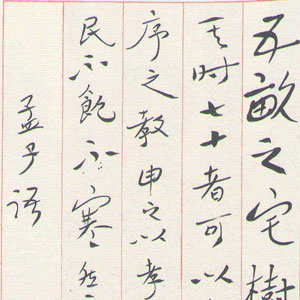 五畝之宅樹
其时七十者可以
序之教申之以孝
民不飽不寒然
孟子语